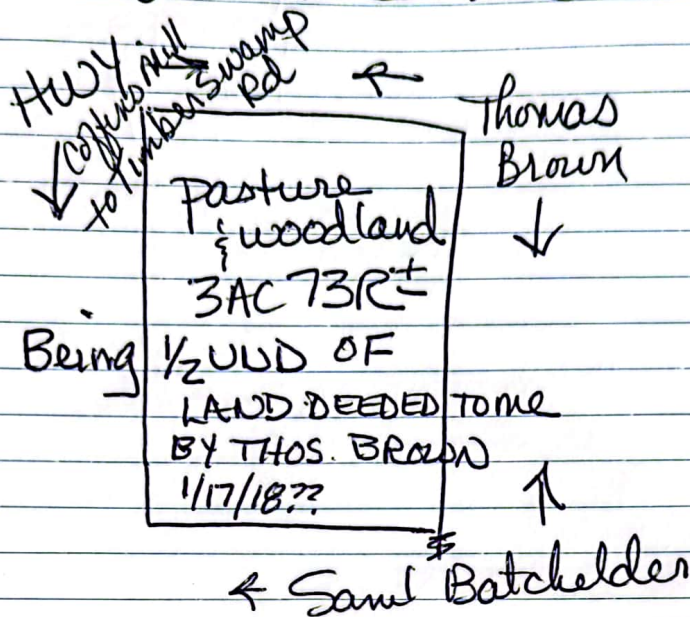 HWY
Coffins Mill
to Timber Swamp
Rd
Thomas
Brown
Pasture
& woodland
3AC 73R±
Being 1/2 UUD OF
LAND DEEDED TO me
BY THOS. BROWN
1/17/18??
Saml Batchelder